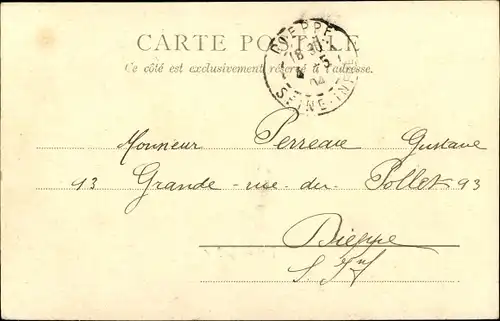 CARTE POSTALE
Ce côté est exclusivement réservé à l'adresse.
DIEPPE
18 30
5
04
SEINE-INFRE
Monsieur Perreau Gustave
93 Grande-rue-du-Pollet 93
Dieppe
S. Inf